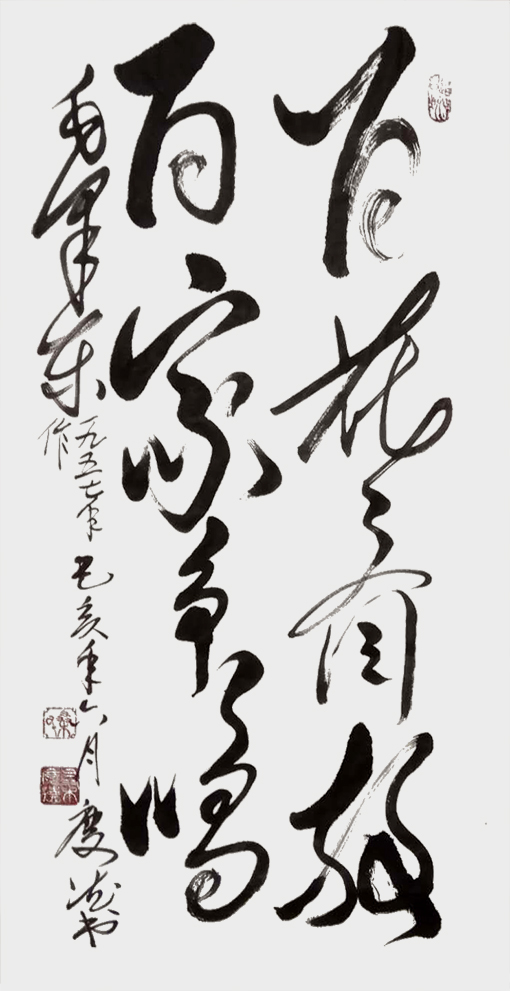 百花齐放
百家争鸣
毛泽东作一九五七年己亥年六月庆